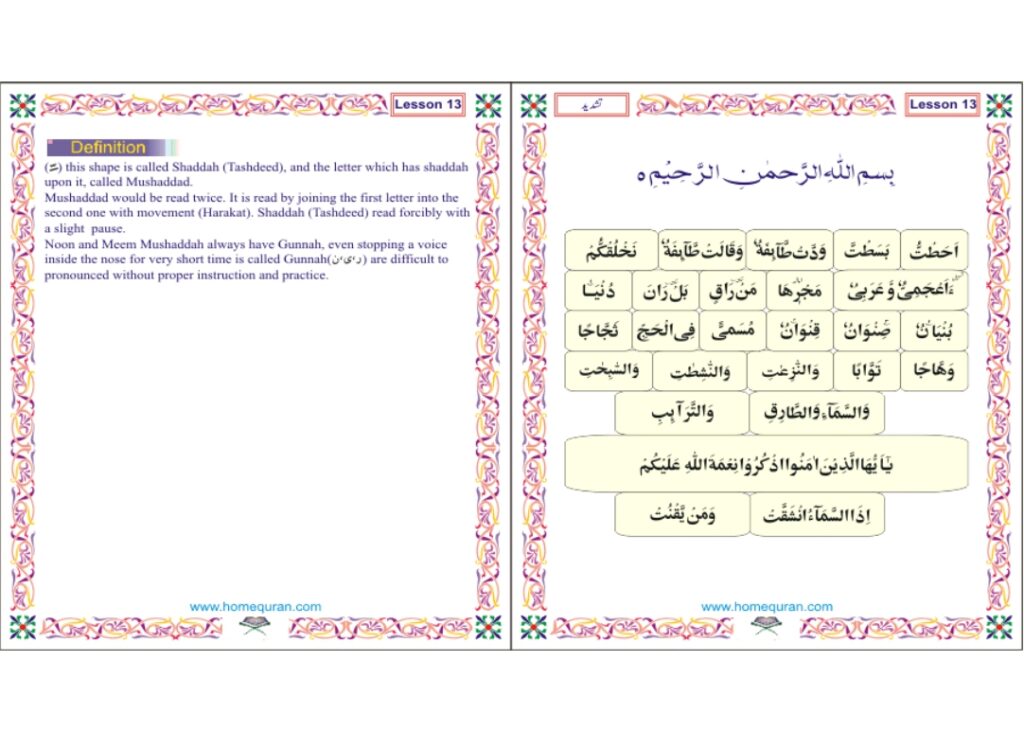 Lesson 13
Definition
(ــّـ) this shape is called Shaddah (Tashdeed), and the letter which has shaddah
upon it, called Mushaddad.
Mushaddad would be read twice. It is read by joining the first letter into the
second one with movement (Harakat). Shaddah (Tashdeed) read forcibly with
a slight pause.
Noon and Meem Mushaddah always have Gunnah, even stopping a voice
inside the nose for very short time is called Gunnah() are difficult to
pronounced without proper instruction and practice.
www.homequran.com
تشدید Lesson 13
بِسْمِ اللّٰهِ الرَّحْمٰنِ الرَّحِيْمِ
اَحَطْتُّ بَسَطْتَّ وَدَّتْ طَّآئِفَةٌ وَقَالَتْ طَّآئِفَةٌ نَخْلُقْكُّمْ
ءَاَعْجَمِىٌّ وَّ عَرَبِىٌّ مَجْرٖىهَا مَنْ رَاقٍ بَلْ رَانَ دُنْيَا
بُنْيَانٌ صِنْوَانٌ قِنْوَانٌ مُسَمًّى فِى الْحَجِّ ثَجَّاجًا
وَهَّاجًا تَوَّابًا وَالنّٰزِعٰتِ وَالنّٰشِطٰتِ وَالسّٰبِحٰتِ
وَالسَّمَآءِ وَالطَّارِقِ وَالتَّرَآئِبِ
يٰۤاَيُّهَا الَّذِيْنَ اٰمَنُوا اذْكُرُوْا نِعْمَةَ اللّٰهِ عَلَيْكُمْ
اِذَا السَّمَآءُ انْشَقَّتْ وَمَنْ يَّقْنُتْ
www.homequran.com